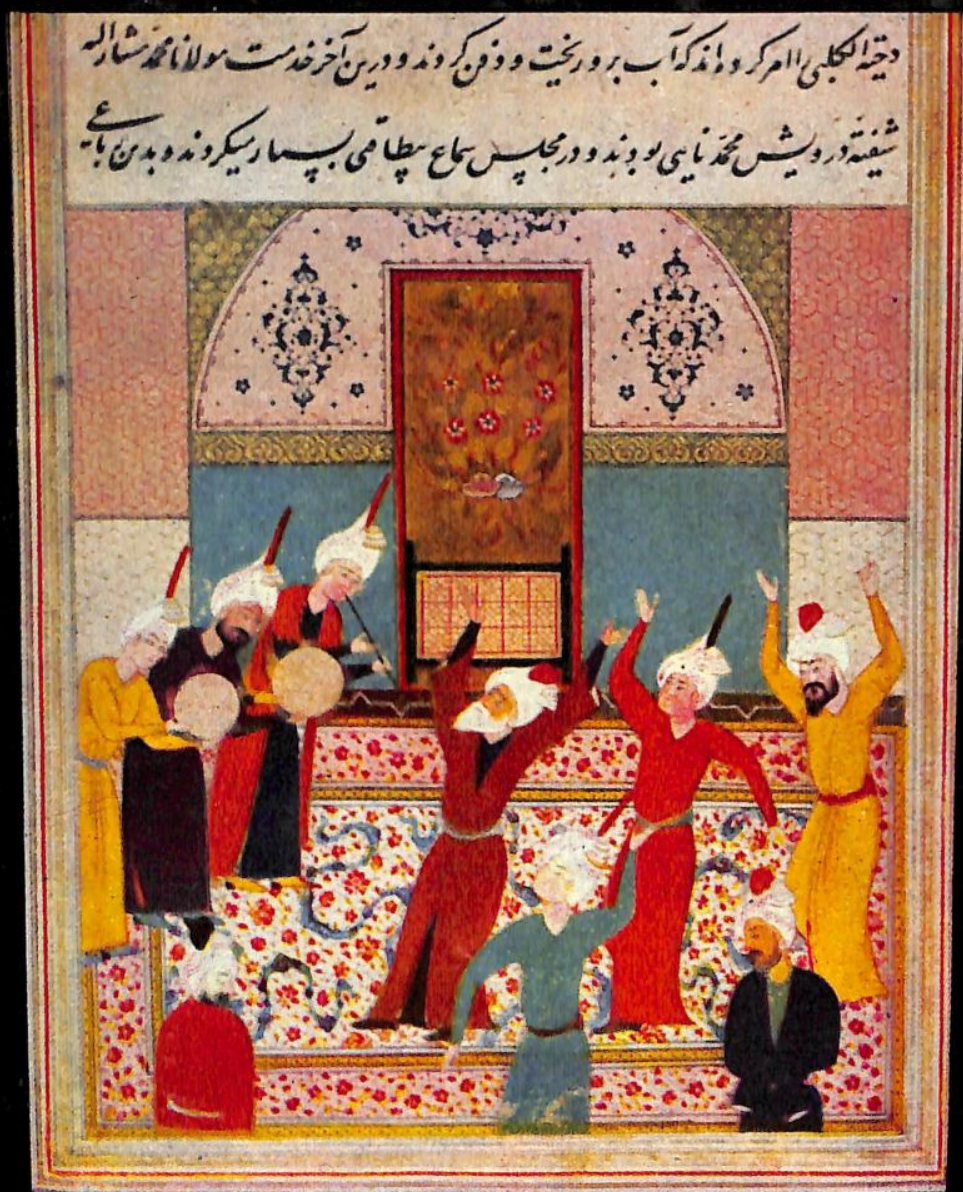 دخته الکلبی را امر کرده اند که آب برو ریخت و دفن کردند و درین آخر خدمت مولانا محمد مشارالیه
شیفتهٔ درویش محمد نایی بودند و در مجلس سماع بیطاقتی بسیار میکردند و بدین رباعی